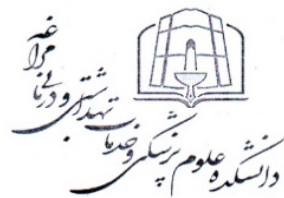 دانشکده علوم پزشکی و خدمات
بهداشتی و درمانی
مراغه